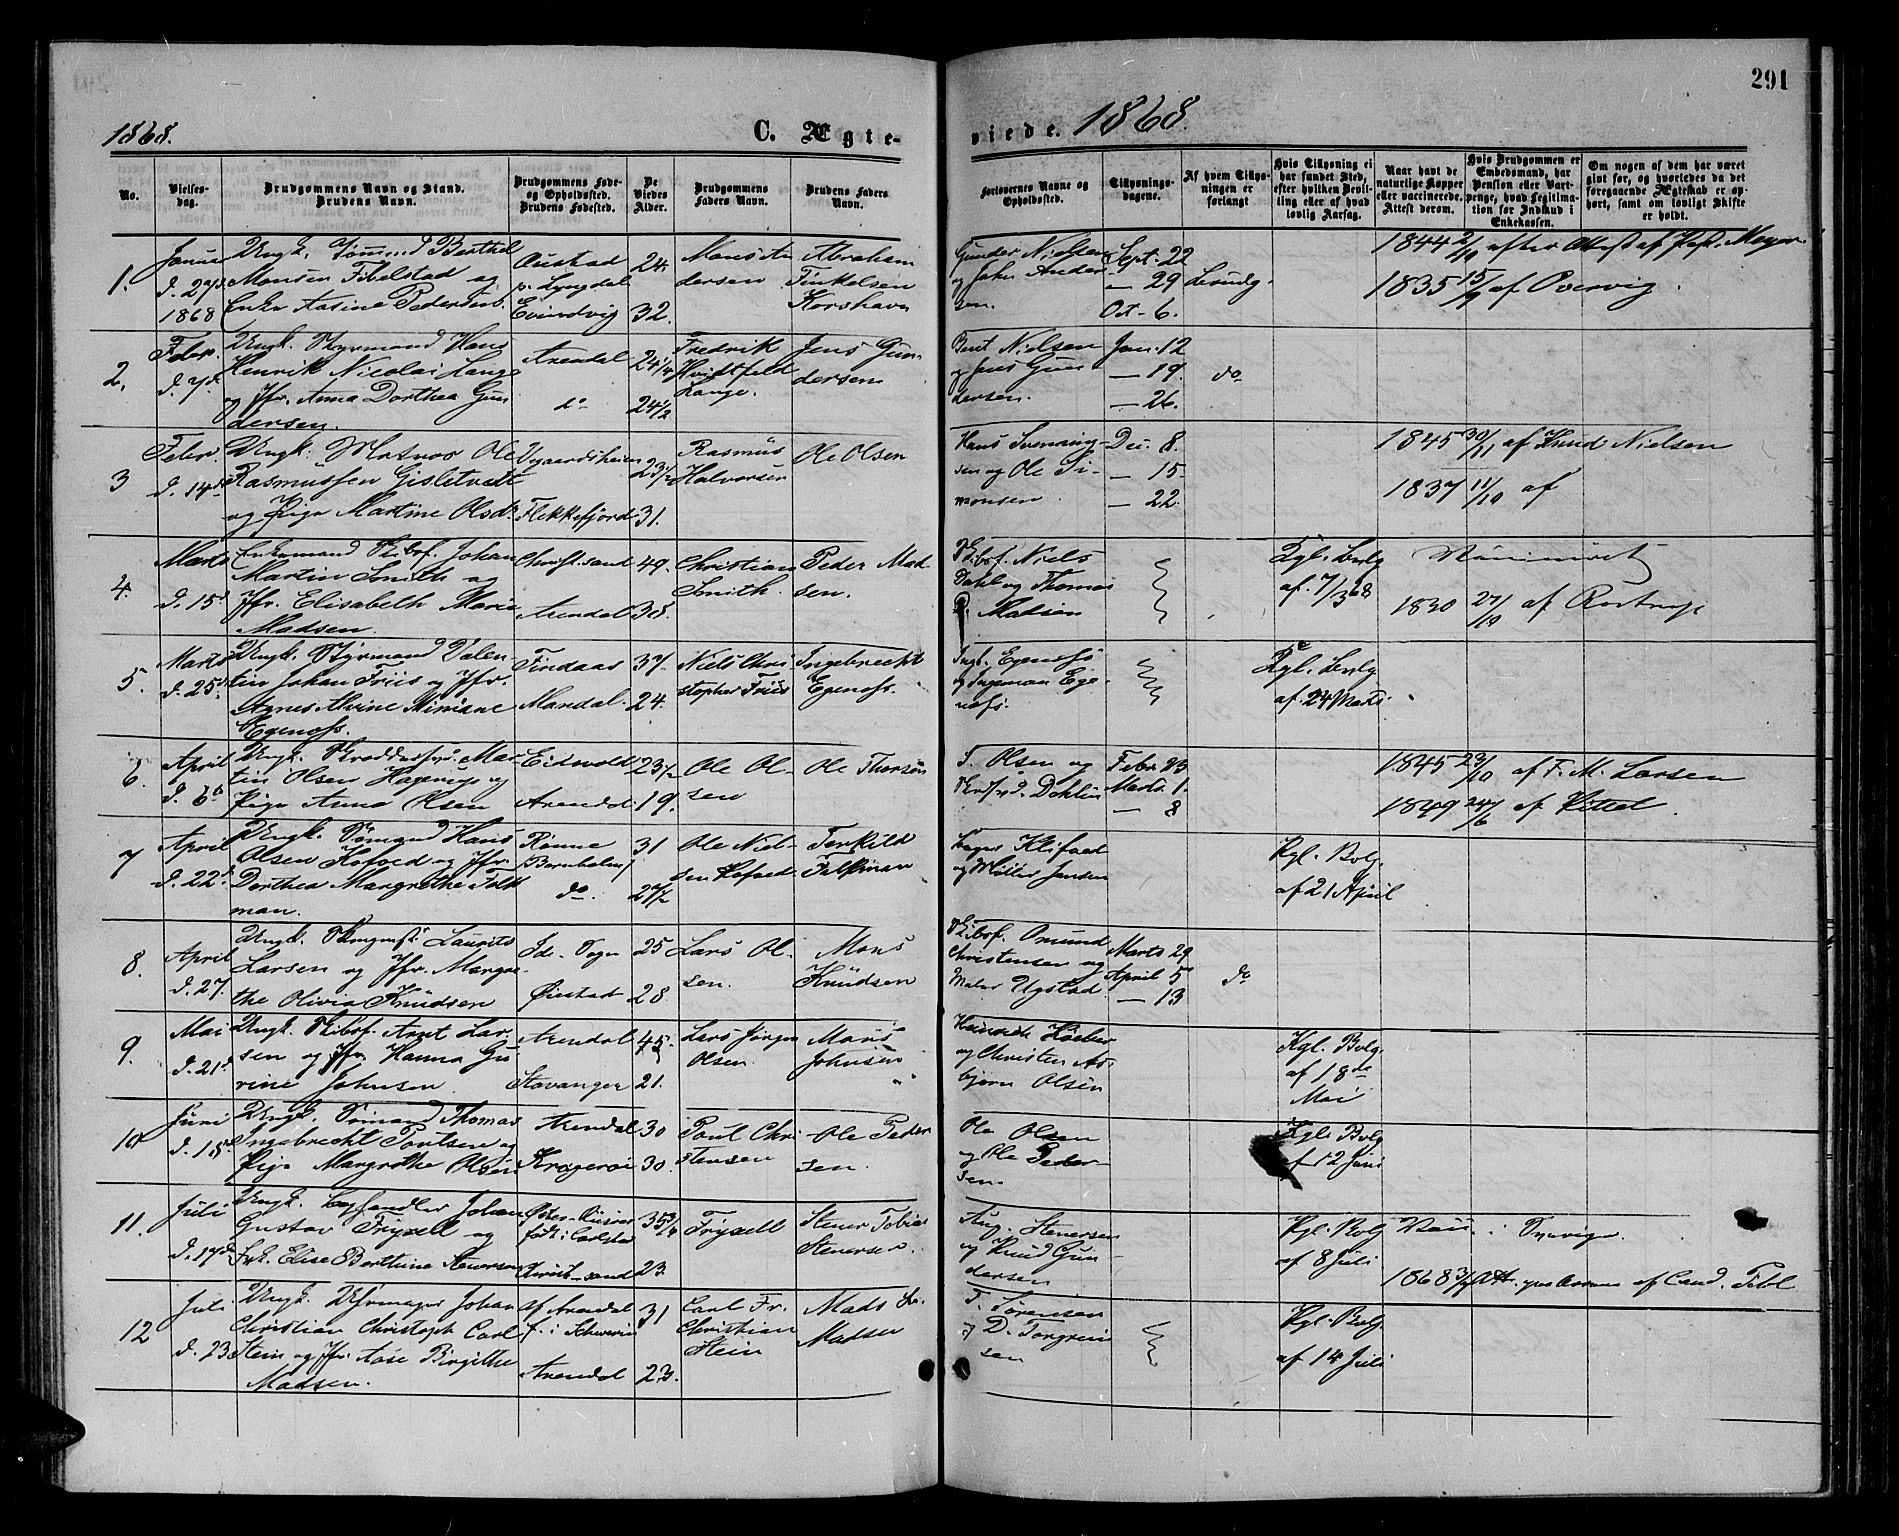 291
1868.
C. Ægte-
viede. 1868.
No.
Vielses-
dag.
Brudgommens Navn og Stand.
Brudens Navn.
Brudgommens Føde-
og Opholdssted.
Brudens Fødested.
De
Viedes
Alder.
Brudgommens
Faders Navn.
Brudens Faders
Navn.
Forlovernes Navne og
Opholdssted.
Tillysnings-
dagene.
Af hvem Tillys-
ningen er
forlangt
Hvis Tillysning ei
har fundet Sted,
efter hvilken Bevil-
ling eller af hvad
lovlig Aarsag.
Naar havt de
naturlige Kopper
eller vaccinerede.
Attest derom.
Hvis Brudgommen er
Embedsmand, har
Pension eller Vart-
penge, hvad Legitima-
tion for Indskud i
Enkekassen.
Om nogen af dem har været
gift før, og hvorledes da det
foregaaende Ægteskab er op-
hørt, samt om lovligt Skifte
er holdt.
1.
d. 27
1868
Ungk. Berthel
Monsen Fibelstad og
Enke Aasine Pedersen
Austad
p. Lyngdal
Evindvig
24.
32.
Mons An
dersen
Abraham
Finkelsen
Korshavn
Gunder Nielsen
og John Ander
sen.
Sept. 22
— 29
Oct. 6.
1844 2/10 efter Attest af Past. Meyer
1835 15/9 af Overvig.
2.
Febr.
d. 7de
Ungk. Styrmand Hans
Henrik Nicolai Lange
og Jfr. Anna Dorthea Gun
dersen.
Arendal
do
24 1/4
24 1/2
Fredrik
Hvidtfeld
Lange.
Jens Gun
dersen
Bent Nielsen
og Jens Gun
dersen.
Jan. 12
— 19.
— 26.
do
3
Febr.
d. 14de
Ungk. Matros Ole
Rasmussen Gislitvedt
og Pige Martine Olsdr
Vegaardsheien
Flekkefjord
23 1/2
31.
Rasmus
Halvorsen
Ole Olsen
Hans Svenning
sen og Ole Si-
monsen
Dec. 8.
— 15
— 22.
1845 30/11 af Knud Nielsen
1837 11/10 af
4.
Marts
d. 15de
Enkemand Skibsf. Johan
Martin Smith og
Jfr. Elisabeth Marie
Madsen.
Christ.sand
Arendal
49.
38.
Christian
Smith.
Peder Mad
sen.
Skibsf. Niels
Dahl og Thomas
P. Madsen
Kgl. Bevlg
af 7/3 68
1830 27/10 af
5.
Marts
d. 25de
Ungk. Styrmand Valen
tin Johan Friis og Jfr.
Agnes Alvine Miniane
Egenæss.
Findaas
Mandal.
37.
24.
Niels Chri
stopher Friis
Ingebrecht
Egenæss.
Ingb. Egenæss
og Ingeman Ege
næss.
Kgl. Bevlg
af 24 Marts.
6.
April
d. 6te
Ungk. Mar-
tin Olsen og
Pige Anna Olsen
Eidsvold
Arendal
23 1/2
19.
Ole Ol-
sen
Ole Thorsen
S. Olsen og
Febr. 23
Marts 1.
— 8
1845 23/10 af F. M. Larsen
1849 24/6 af Kittel.
7
April
d. 22de
Ungk. Sømand Hans
Olsen Kofoed og Jfr.
Dorthea Margrethe Falk
man.
Rønne
Bornholm
do.
31
27 1/2
Ole Niel-
sen Kofoed
Terkild
Falkman
og Møller Jensen
Kgl. Bvlg.
af 21 April
8.
April
d. 27.
Ungk. Laurits
Larsen og Jfr. Margre-
the Olivia Knudsen
Ide-Sogn
Øiestad
25
28
Lars Ol-
sen.
Mons
Knudsen
Skibsf. Omund
Christensen og
Maler Ugstad.
Marts 29
April 5
— 13
do
9
Mai
d. 21de
Ungk. Skibsf. Arnt Lar
sen og Jfr. Hanna Gu
rine Johnsen
Arendal
Stavanger
45
21.
Lars Jørgen
Olsen
Mons
Johnsen
og Christen As-
bjørn Olsen
Kgl. Bvlg.
af 18de
Mai
10
Juni
d. 18de
Ungk. Sømand Thomas
Ingebrecht Poulsen og
Pige Margrethe Olsen
Arendal
Kragerøi
30
30.
Poul Chri
stensen
Ole Peder
sen.
Ole Olsen
og Ole Peder-
sen.
Kgl. Bvlg
af 12 Juni
11.
Juli
d. 17de
Ungk. Johan
Gustav Fryxell og
Frk. Elise Berthine Stenersen
Øster-Riisøer
født i Carlstad
Christ.sand
35 3/4
23.
Fryxell
Stener Tobias
Stenersen.
Aug. Stenersen
og Knud Gun-
dersen
Kgl. Bvlg
af 8 Juli
Vacc. i Sverige
1868 3/7 Att. af Cand. Tibl
12
Juli
d. 23
Ungk. Uhrmager Johan
Christian Christoph Carl
Stein og Jfr. Aase Birgithe
Madsen.
af Arendal
f. i Schwerin
Arendal
31
23.
Carl Fr.
Christian
Stein
Mads
Madsen
T. Sørensen
og D. Torgrim
sen
Kgl. Bvlg.
af 14 Juli